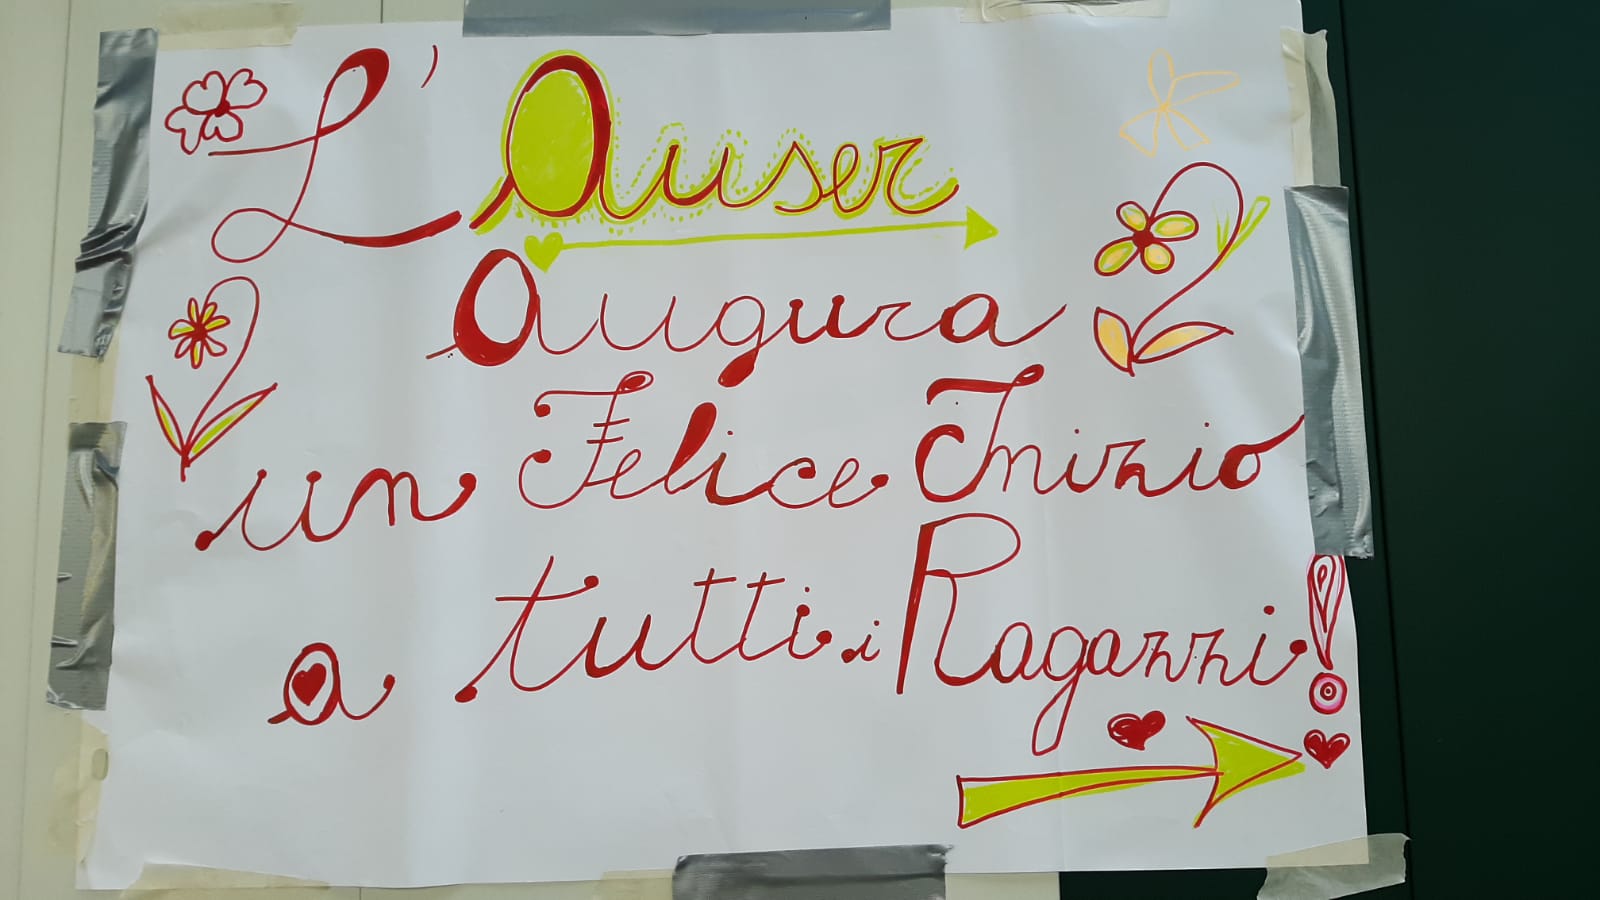 L'Auser
Augura
un Felice Inizio
a tutti i Ragazzi!